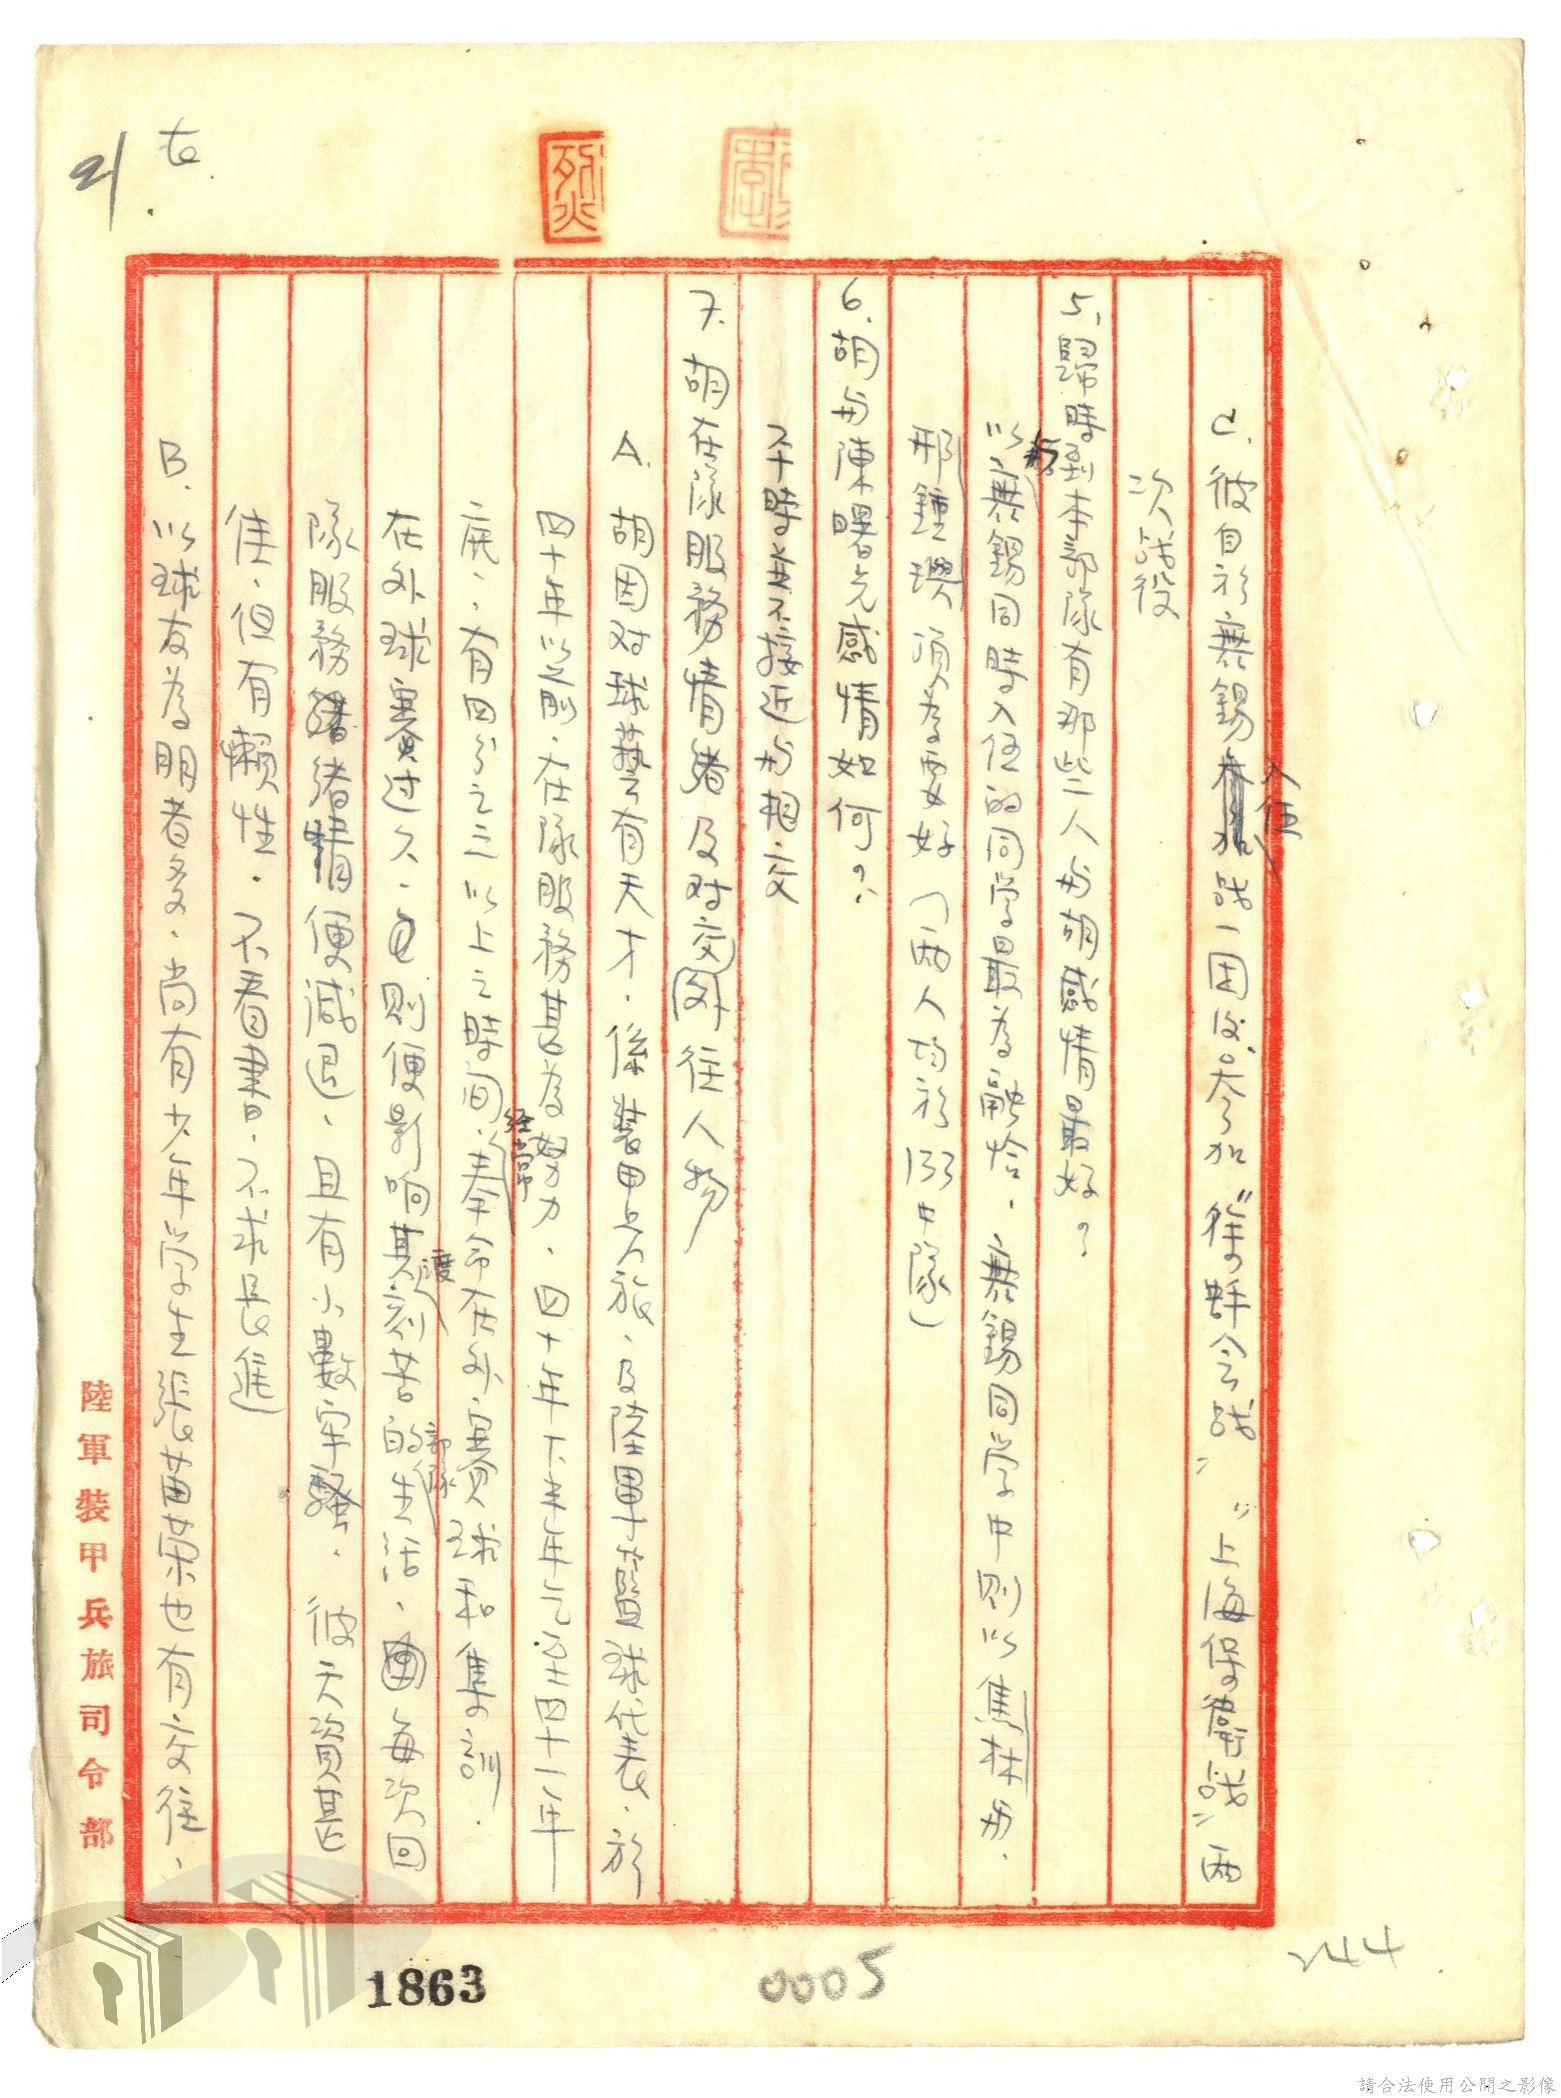 右
21
烈
C.彼自於無錫入伍战一团后、參加“徐蚌会战”“上海保衛战”兩
次战役
5.歸時到本部隊有那些人与胡感情最好？
以無錫同時入伍的同学最為融恰．無錫同学中則以焦林与．
邢鍾璵 須為要好（兩人均於133中隊）
6.胡与陳曙光感情如何？
平時並不接近与相交
7.胡在隊服務情绪及对交往人物
A.胡因对球藝有天才．係裝甲兵旅．及陸軍籃球代表．於
四十年以前．在隊服務甚為努力、四十年下半年乞至四十一年
底．有四分之三以上之時间．經常奉命在外賽球和集訓．
在外球賽过久．則便影响其刻苦的部隊生活、每次回
隊服務绪情便減退、且有小數牢騷．彼天資甚
佳．但有懶性．不看書．不求長進
B.以球友為朋者多．尚有少年学生張苗荣也有交往、
陸軍裝甲兵旅司令部
1863
0005
244
請合法使用公開之影像